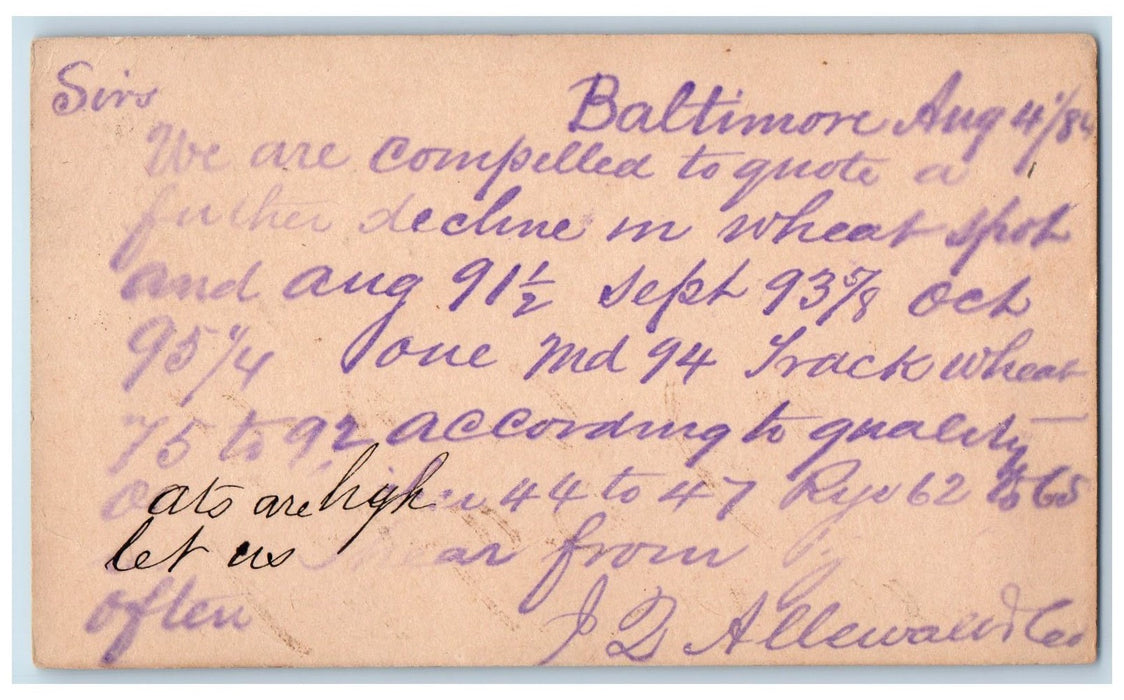 Sirs Baltimore Aug 4"/84
We are compelled to quote a
further decline in wheat spot
and aug 91½ sept 93⅝ Oct
95¼ one Md 94 Track wheat
75 to 92 according to quality
Oats are higher 44 to 47 Rye 62 to 65
let us hear from
often
J D Allewalt & Co